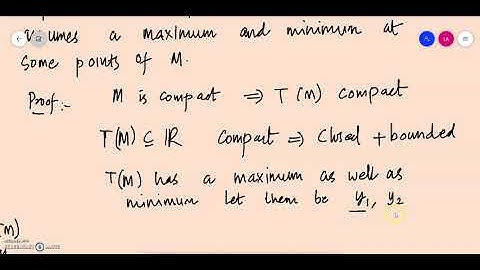 assumes a maximum and minimum at
some points of M.
Proof:- M is compact ⇒ T(M) compact
T(M) ⊆ ℝ Compact ⇒ Closed + bounded
T(M) has a maximum as well as
minimum let them be y₁, y₂
(M)